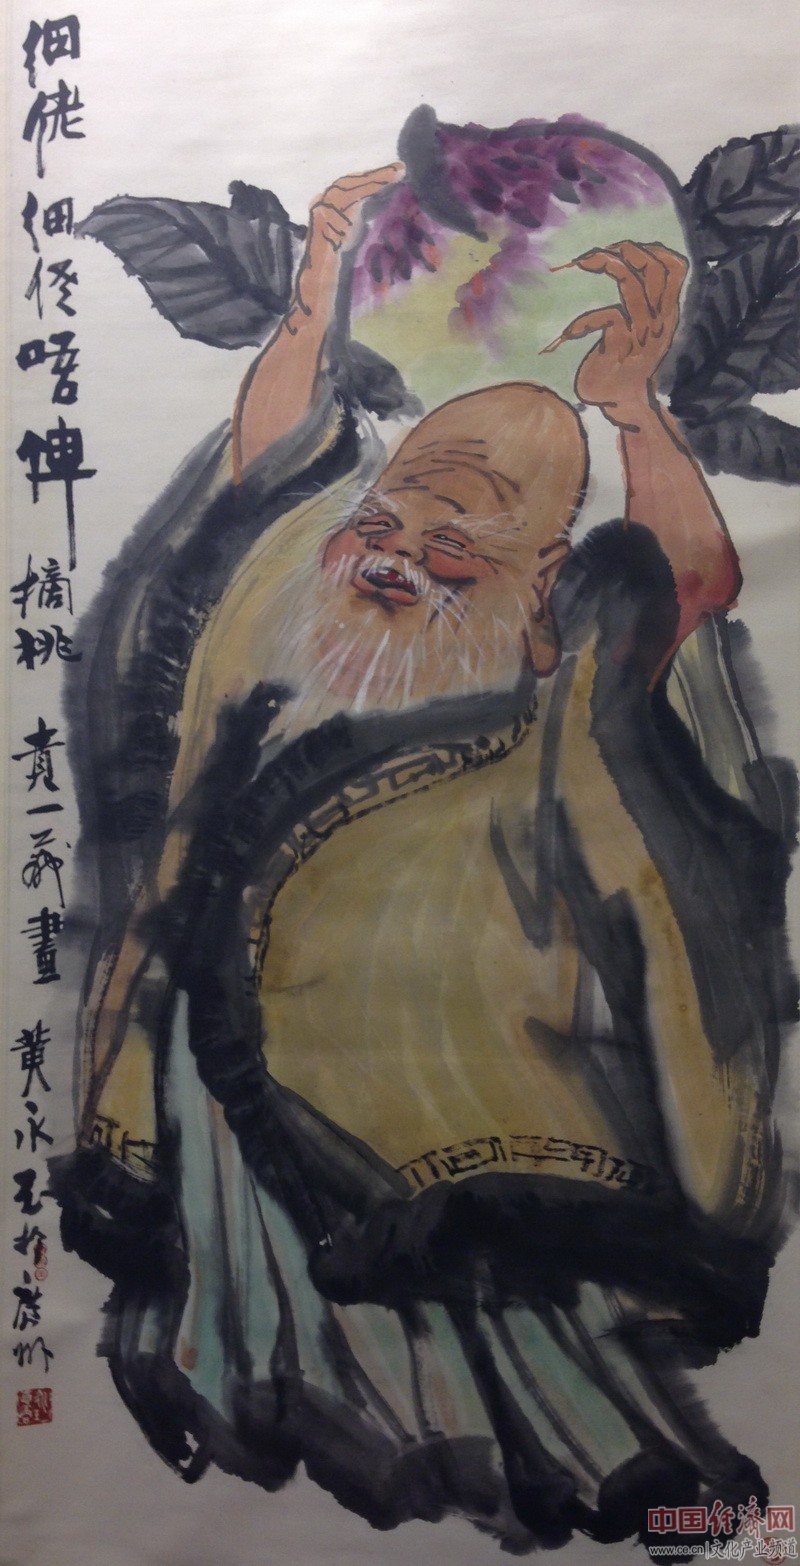 细佬细佬唔俾摘桃 一義畫 黄永玉於廣州
中国经济网
www.ce.cn|文化产业频道